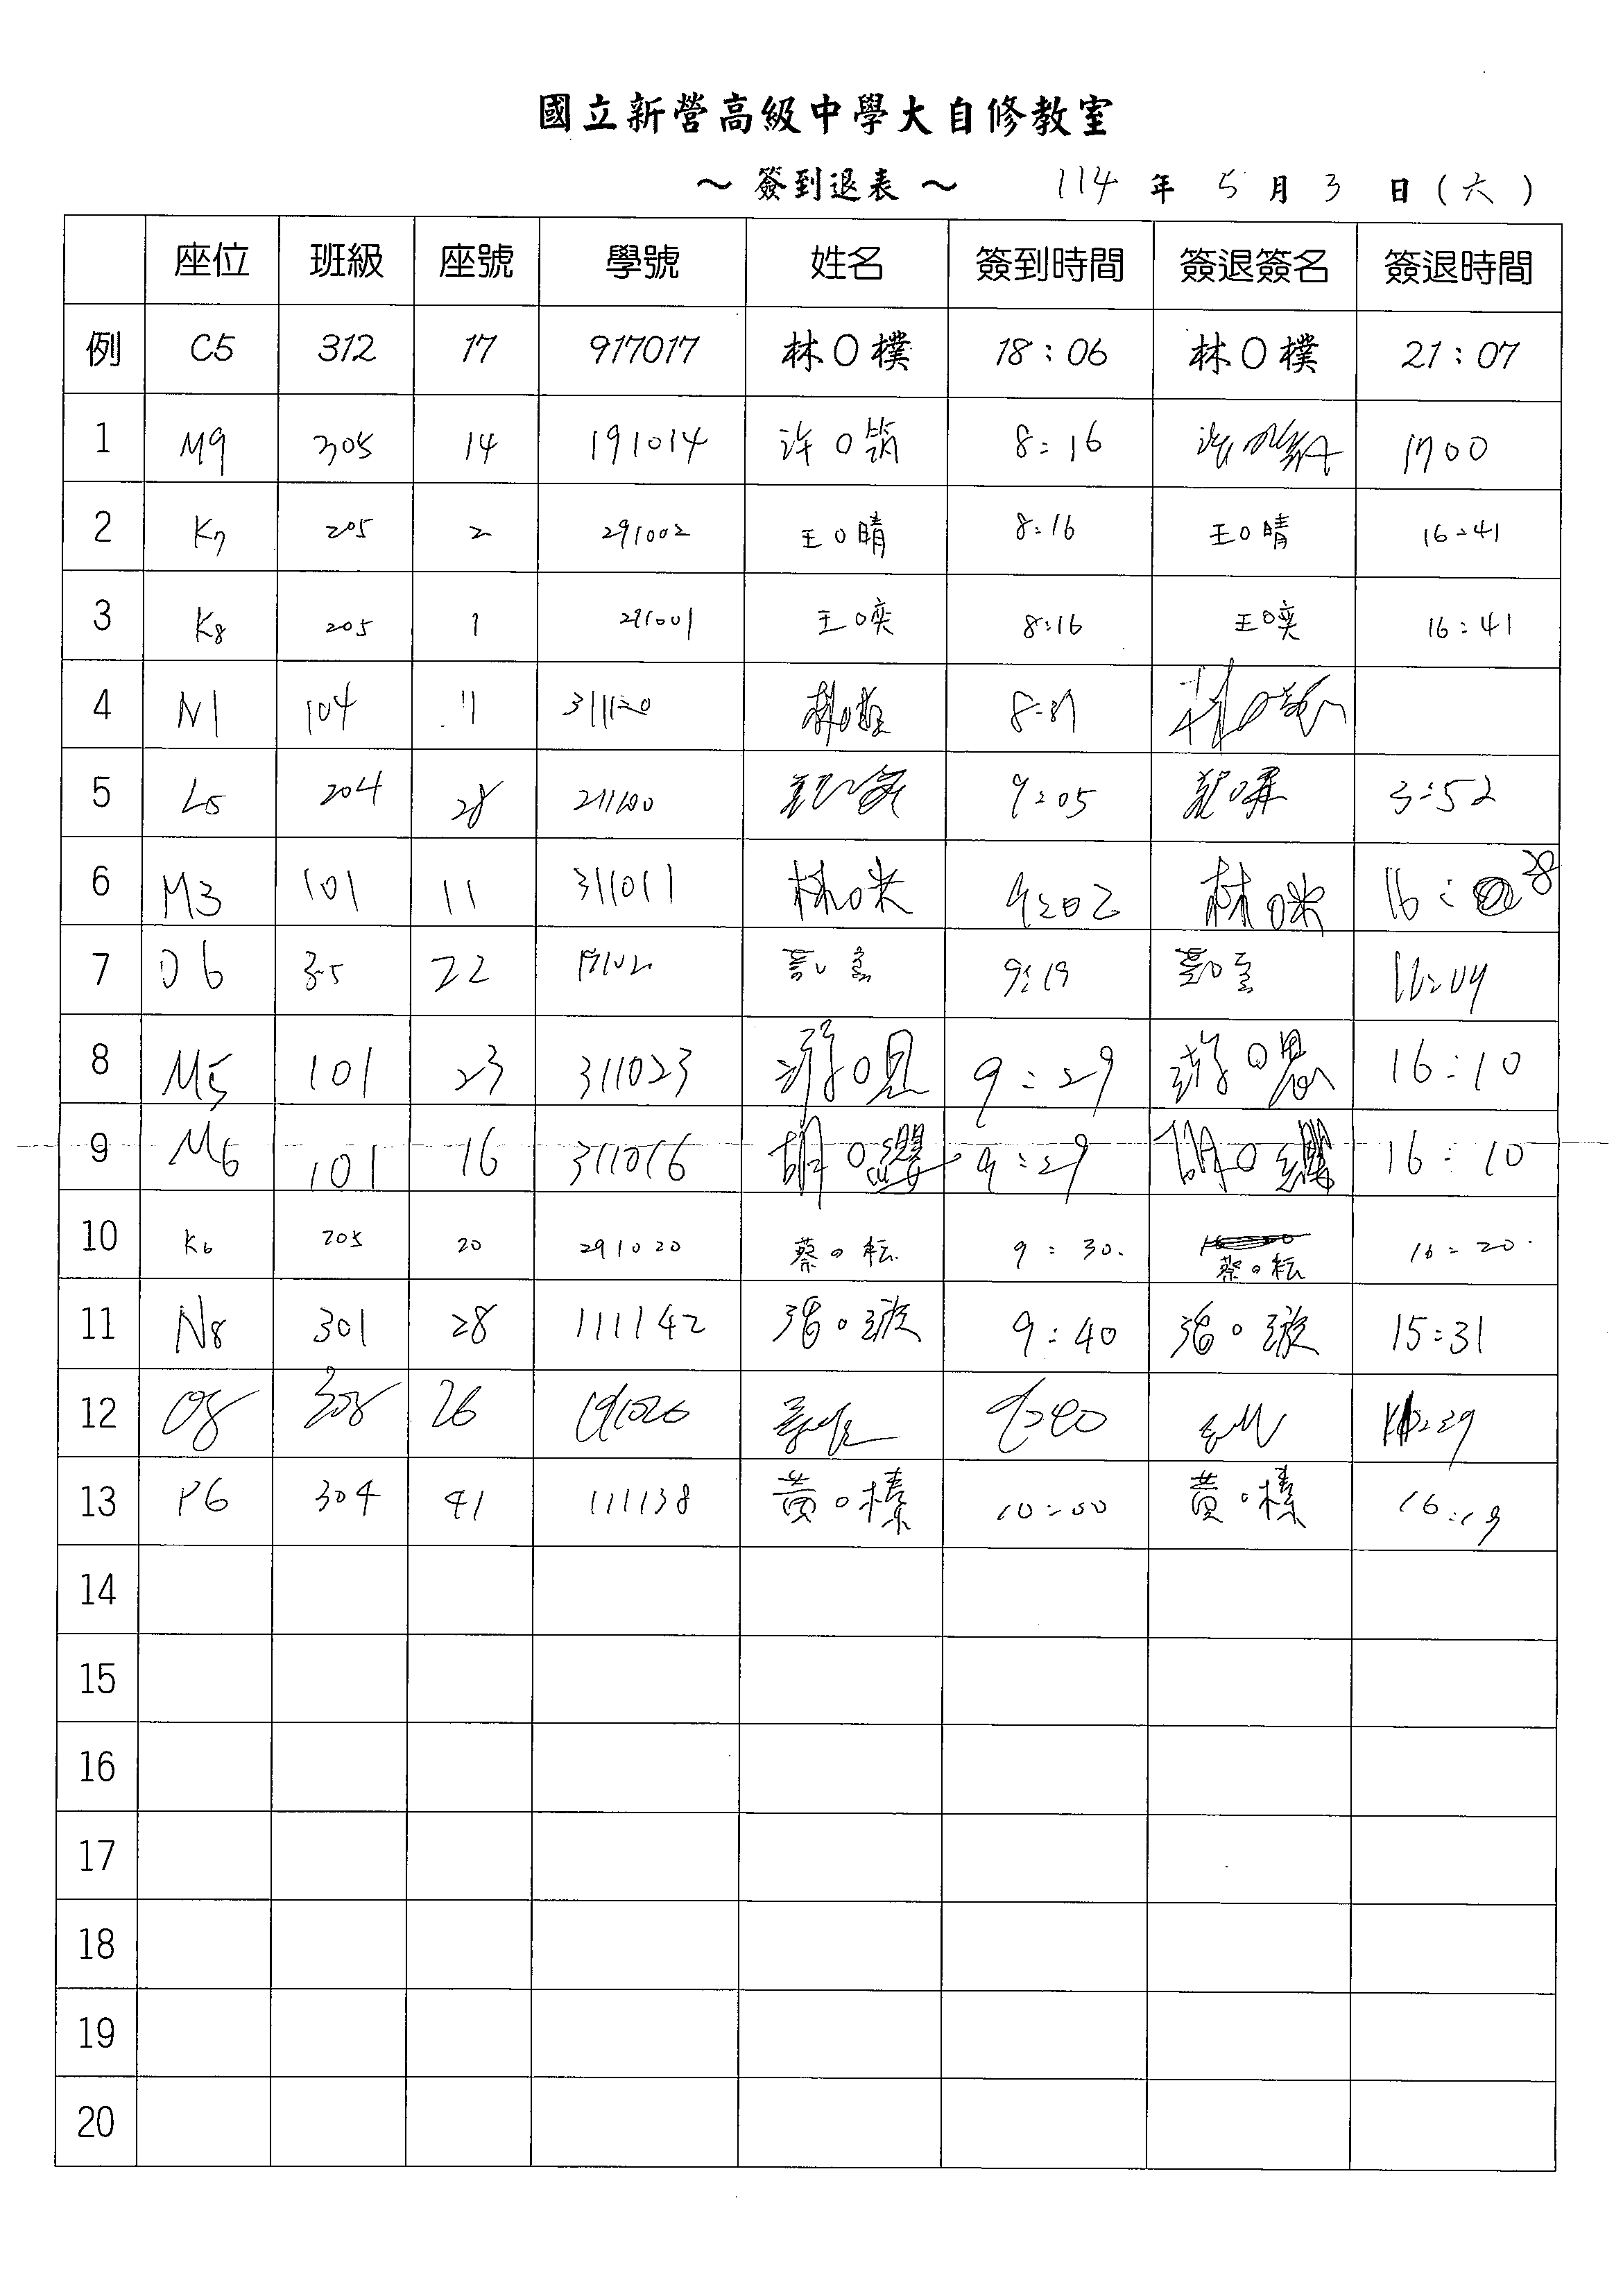 國立新營高級中學大自修教室
～ 簽到退表 ～ 114 年 5 月 3 日 (六)
座位 班級 座號 學號 姓名 簽到時間 簽退簽名 簽退時間
例 C5 312 17 917017 林O樸 18:06 林O樸 21:07
1 M9 305 14 191014 許O筑 8:16 1700
2 K7 205 2 291002 王O晴 8:16 王O晴 16:41
3 K8 205 1 291001 王O奕 8:16 王O奕 16:41
4 N1 104 11
5 L5 204 28 9:05 3:52
6 M3 101 11 311011 林O 9:02 林O 16: 28
7 O6 22 9:19
8 M5 101 23 311023 游O恩 9:29 游O恩 16:10
9 M6 101 16 311016 胡O纓 9:29 胡O 16:10
10 K6 205 20 291020 蔡O耘 9:30. 蔡O耘 16:20.
11 N8 301 28 111142 O璇 9:40 O璇 15:31
12 O8 308 26
13 P6 304 41 111138 黃O榛 10:00 黃O榛 16:19
14
15
16
17
18
19
20